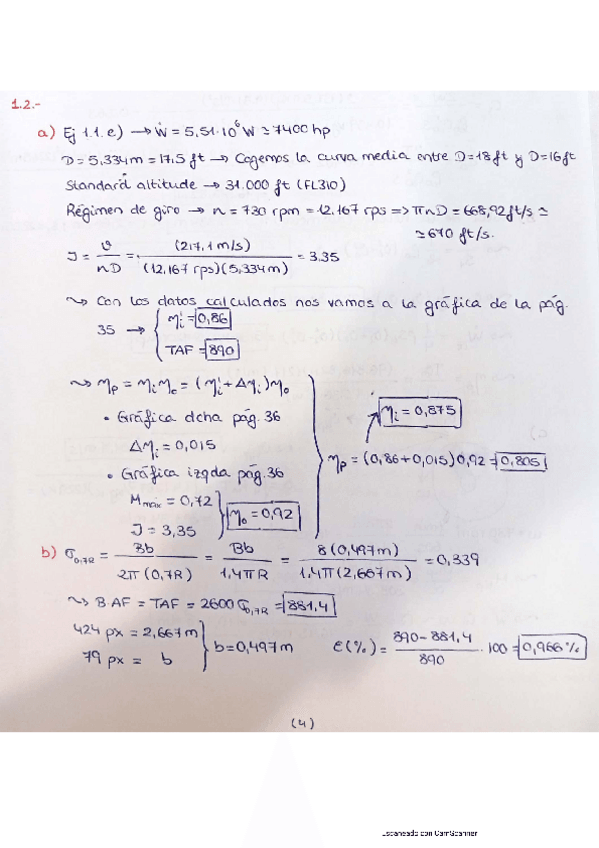 1.2.-
a) Ej 1.1.e) → Ẇ = 5,51·10⁶ W ≃ 7400 hp
D = 5,334 m = 17,5 ft → Cogemos la curva media entre D=18ft y D=16ft
Standard altitude → 31.000 ft (FL310)
Régimen de giro → n = 730 rpm = 12,167 rps ⇒ πnD = 668,92 ft/s ≃
≃ 670 ft/s.
J = v/(nD) = (217,1 m/s)/((12,167 rps)(5,334 m)) = 3,35
↝ Con los datos calculados nos vamos a la gráfica de la pág.
35 → { η'i = 0,86
TAF = 890
↝ ηp = ηi ηo = (η'i + Δηi) ηo
• Gráfica dcha pág. 36
Δηi = 0,015
• Gráfica izqda pág. 36
Mmáx = 0,72
J = 3,35 } ηo = 0,92
ηi = 0,875
ηp = (0,86 + 0,015) 0,92 = 0,805
b) σ0,7R = Bb/(2π(0,7R)) = Bb/(1,4πR) = 8(0,497m)/(1,4π(2,667m)) = 0,339
↝ B·AF = TAF = 2600 σ0,7R = 881,4
424 px = 2,667 m
79 px = b } b = 0,497 m
ε(%) = (890 - 881,4)/890 · 100 = 0,966 %
(4)
Escaneado con CamScanner